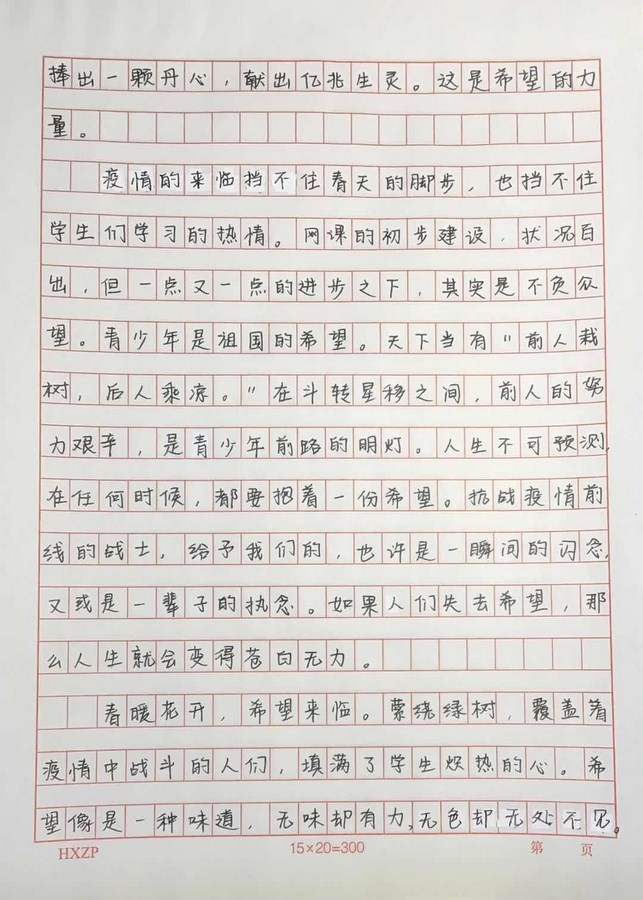 捧出一颗丹心，献出亿兆生灵。这是希望的力
量。
疫情的来临挡不住春天的脚步，也挡不住
学生们学习的热情。网课的初步建设，状况百
出，但一点又一点的进步之下，其实是不负众
望。青少年是祖国的希望。天下当有"前人栽
树，后人乘凉。"在斗转星移之间，前人的努
力艰辛，是青少年前路的明灯。人生不可预测，
在任何时候，都要抱着一份希望。抗战疫情前
线的战士，给予我们的，也许是一瞬间的闪念，
又或是一辈子的执念。如果人们失去希望，那
么人生就会变得苍白无力。
春暖花开，希望来临。萦绕绿树，覆盖着
疫情中战斗的人们，填满了学生炽热的心。希
望像是一种味道，无味却有力，无色却无处不见。
HXZP
15×20=300
第 页